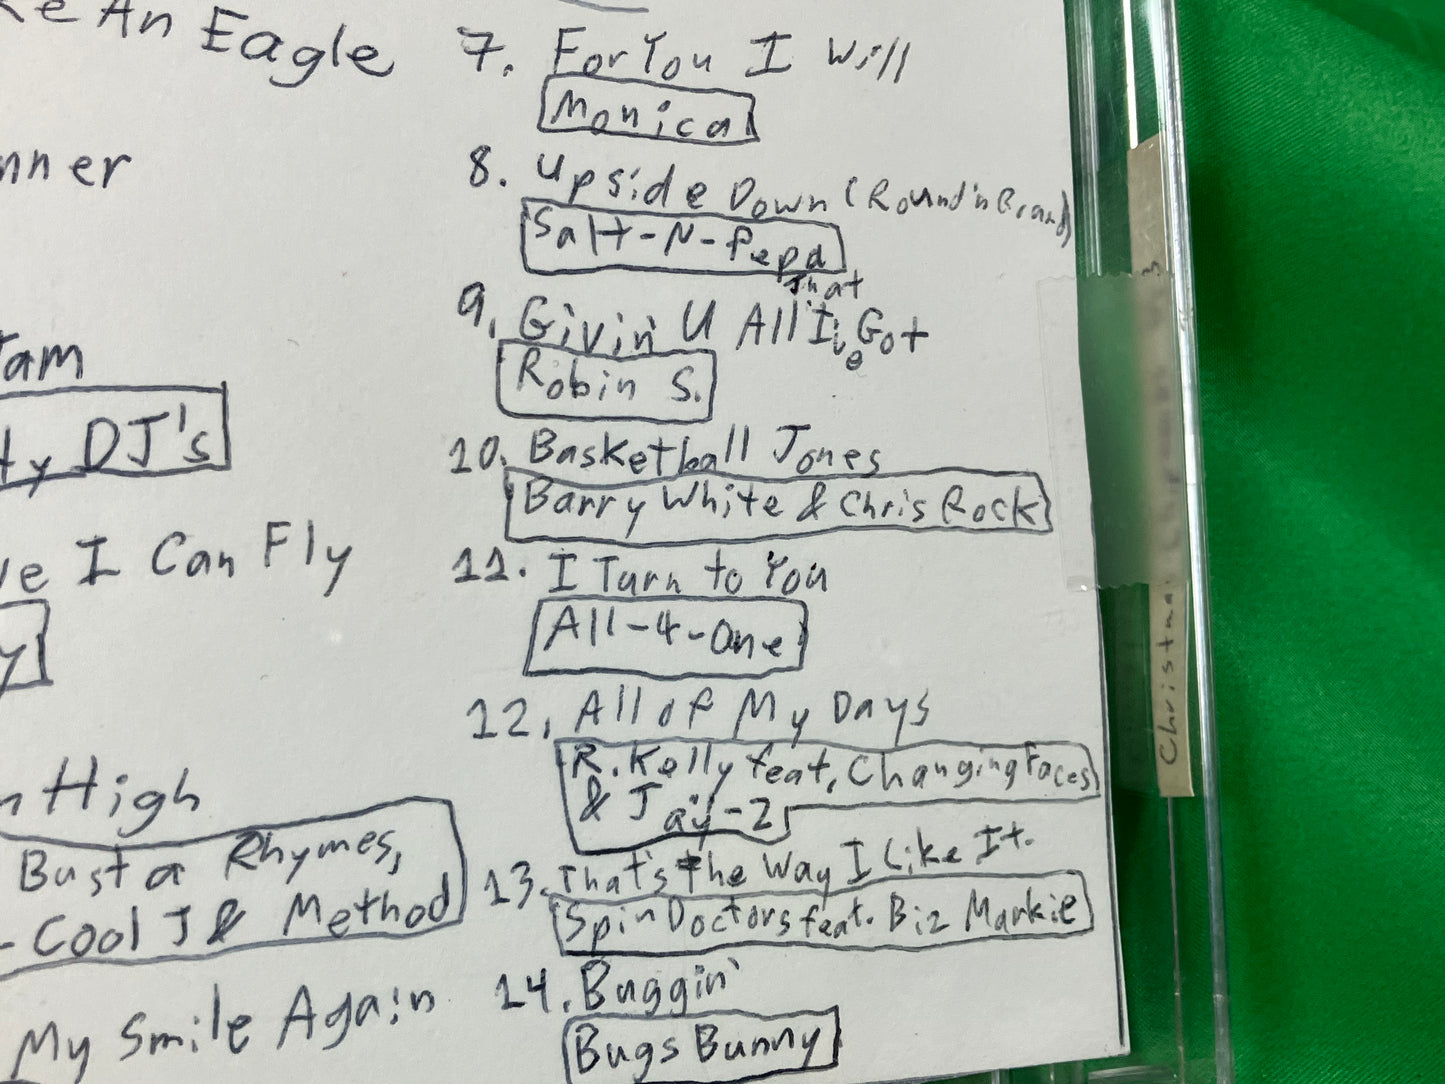 ke An Eagle
nner
Jam
ty DJ's
ve I Can Fly
y
n High
Busta Rhymes,
-Cool J & Method
My Smile Again
7. For You I Will
Monica
8. Upside Down (Round'n
Salt-N-Pepa
That
9. Givin' U All I've Got
Robin S.
10. Basketball Jones
Barry White & Chris Rock
11. I Turn to You
All-4-One
12. All of My Days
R. Kelly feat. Changing Faces
& Jay-Z
13. That's The Way I Like It.
Spin Doctors feat. Biz Markie
14. Buggin'
Bugs Bunny